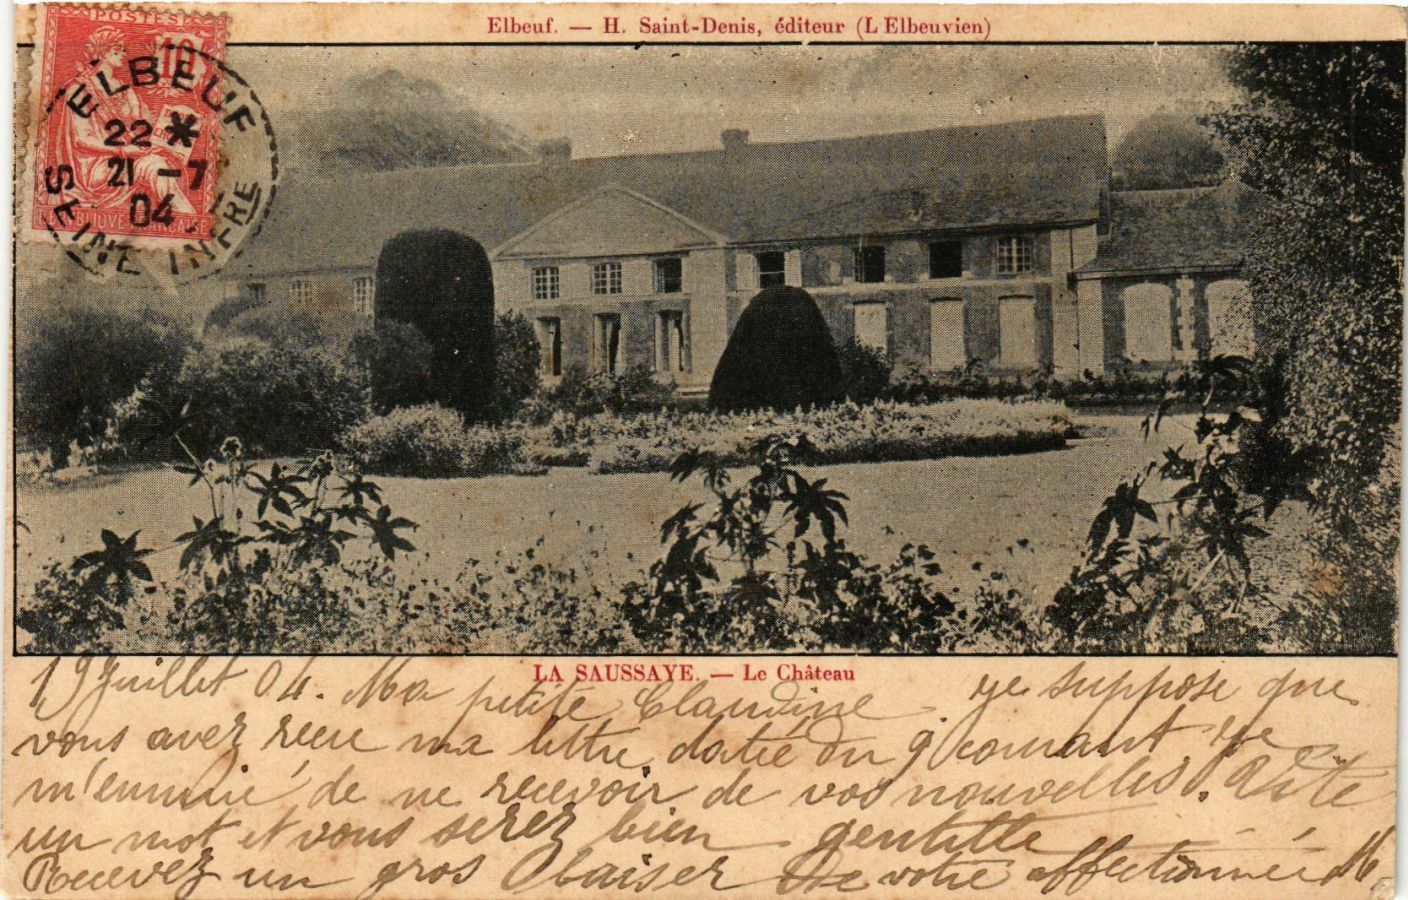 Elbeuf. — H. Saint-Denis, éditeur (L'Elbeuvien)
POSTES
10
RÉPUBLIQUE FRANÇAISE
ELBEUF
22 *
21 -7
04
SEINE INFRE
LA SAUSSAYE. — Le Château
19 Juillet 04. Ma petite Claudine je suppose que
vous avez reçu ma lettre datée du 9 courant je
m'ennuie de ne recevoir de vos nouvelles. Vite
un mot et vous serez bien gentille
Recevez un gros baiser de votre affectionnée M.